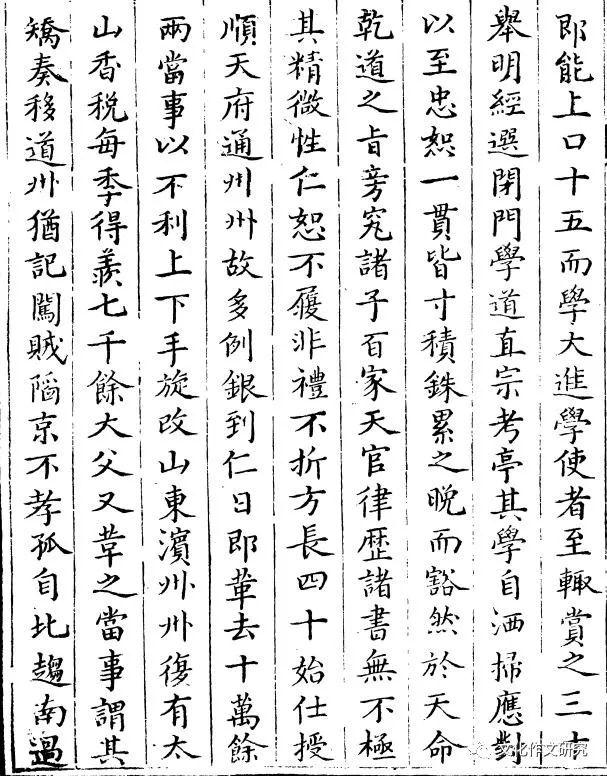 即能上口十五而學大進學使者至輙賞之三十
舉明經選閉門學道直宗考亭其學自洒掃應對
以至忠恕一貫皆寸積銖累之晚而豁然於天命
乾道之旨旁究諸子百家天官律歷諸書無不極
其精微性仁恕不履非禮不折方長四十始仕授
順天府通州州故多例銀到仁日即革去十萬餘
兩當事以不利上下手旋改山東濱州州復有太
山香稅每季得羨七千餘大父又革之當事謂其
矯奏移道州猶記闖賊陷京不孝孤自北趨南過
文化作文研究